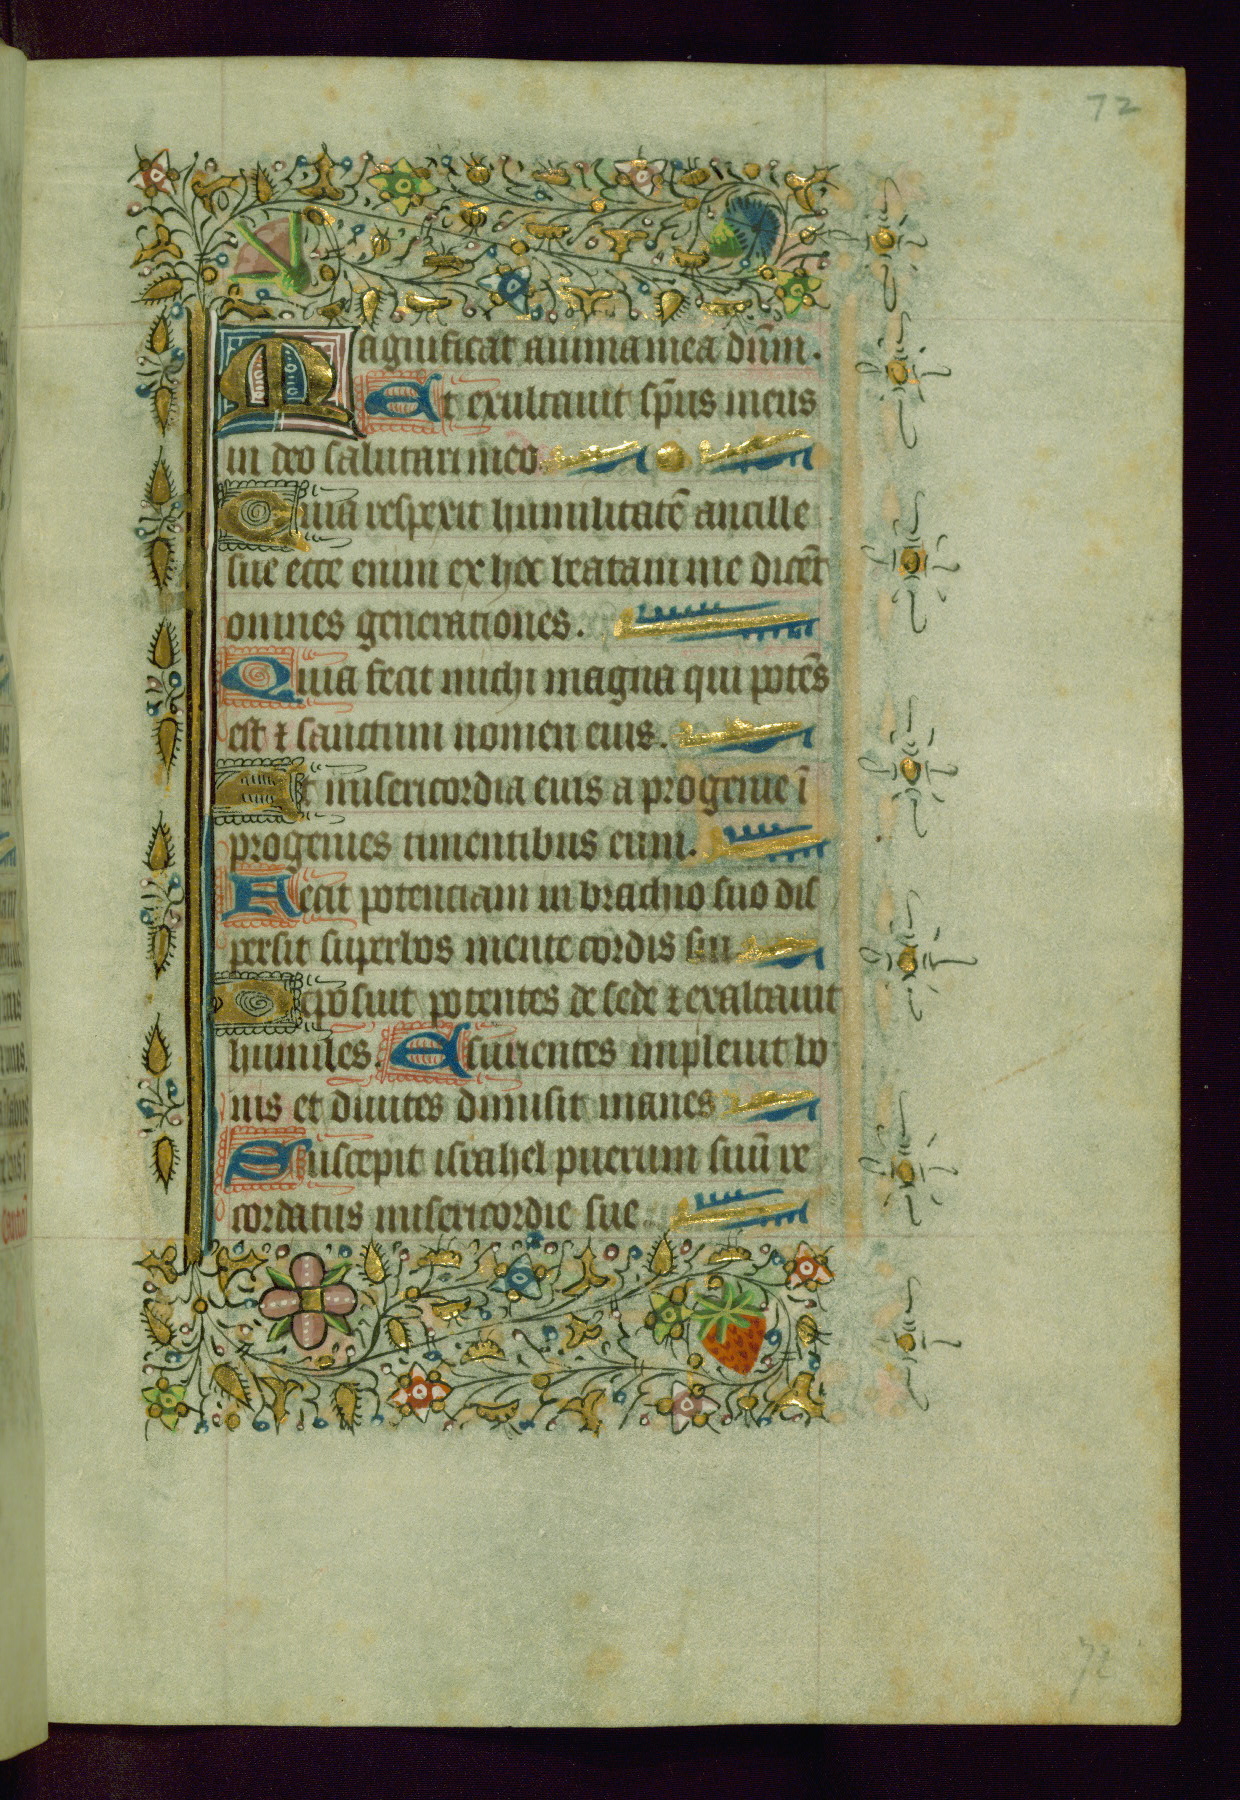 72
Magnificat anima mea dñm.
Et exultauit sp̃us meus
in deo salutari meo.
Quia respexit humilitatẽ ancille
sue ecce enim ex hoc beatam me dicẽt
omnes generationes.
Quia fecit michi magna qui potẽs
est ⁊ sanctum nomen eius.
Et misericordia eius a progenie ĩ
progenies timentibus eum.
Fecit potenciam in brachio suo dis
persit superbos mente cordis sui
Deposuit potentes de sede ⁊ exaltauit
humiles. Esurientes impleuit bo
nis et diuites dimisit inanes
Suscepit israhel puerum suũ re
cordatus misericordie sue.
72